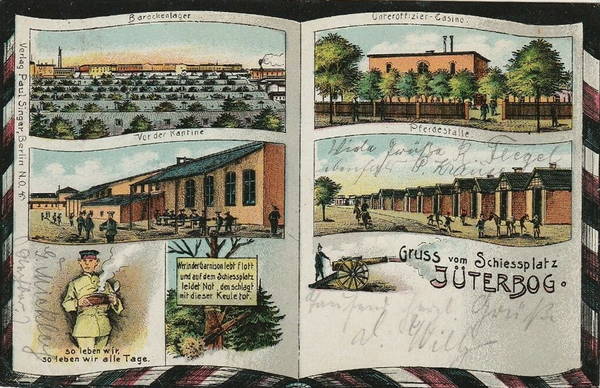 Barackenlager.
Unteroffizier-Casino.
Verlag Paul Singer, Berlin N.O. 43
Vor der Kantine.
Pferdeställe.
Viele Grüße
Wer in der Garnison lebt flott
und auf dem Schiessplatz
leidet Not, den schlagt
mit dieser Keule tot.
Gruss vom Schiessplatz
JÜTERBOG.
so leben wir,
so leben wir alle Tage.
Tausend herzl. Grüße